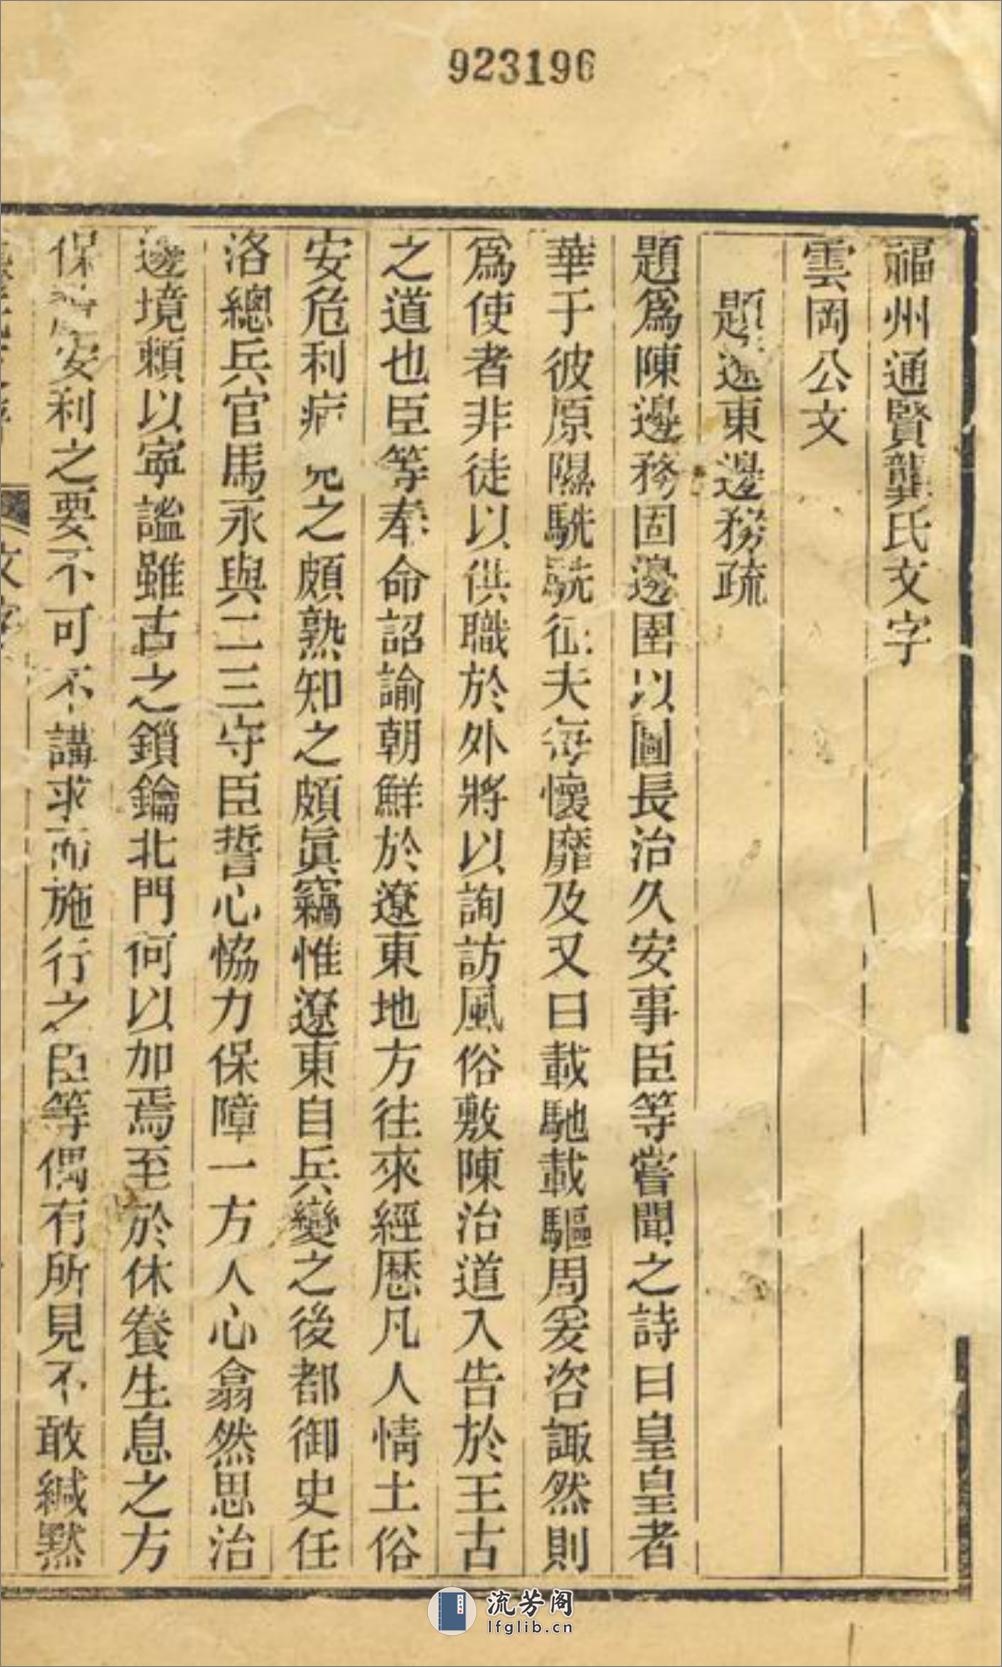 923196
福州通賢龔氏文字
雲岡公文
題遼東邊務疏
題爲陳邊務固邊圉以圖長治久安事臣等嘗聞之詩曰皇皇者
華于彼原隰駪駪征夫每懷靡及又曰載馳載驅周爰咨諏然則
爲使者非徒以供職於外將以詢訪風俗敷陳治道入告於王古
之道也臣等奉命詔諭朝鮮於遼東地方往來經歷凡人情土俗
安危利病究之頗熟知之頗眞竊惟遼東自兵變之後都御史任
洛總兵官馬永與二三守臣誓心恊力保障一方人心翕然思治
邊境頼以寧謐雖古之鎖鑰北門何以加焉至於休養生息之方
保安利之要不可不講求而施行之臣等偶有所見不敢緘默
文字
流芳阁
lfglib.cn